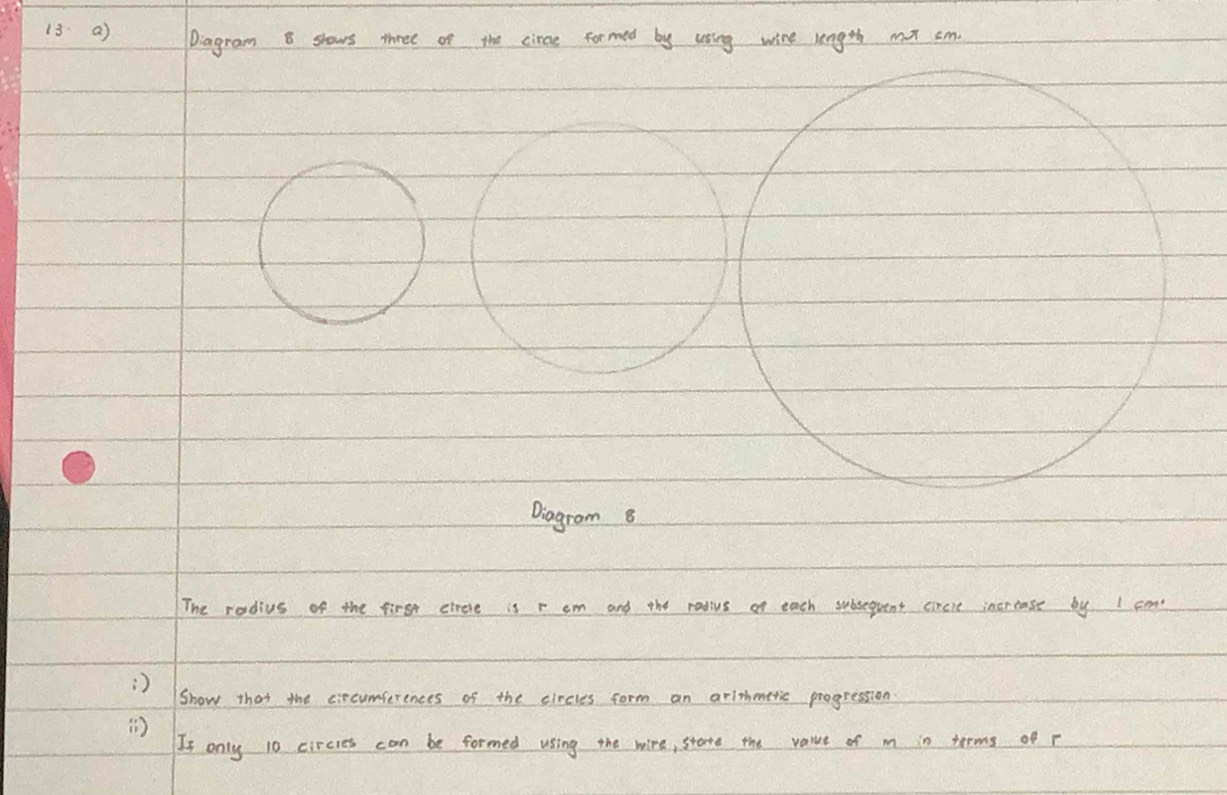 13. a) Diagram 8 shows three of the circle formed by using wire length mπ cm.
Diagram 8
The radius of the first circle is r cm and the radius of each subsequent circle increase by 1 cm.
i) Show that the circumferences of the circles form an arithmetic progression.
ii) If only 10 circles can be formed using the wire, state the value of m in terms of r